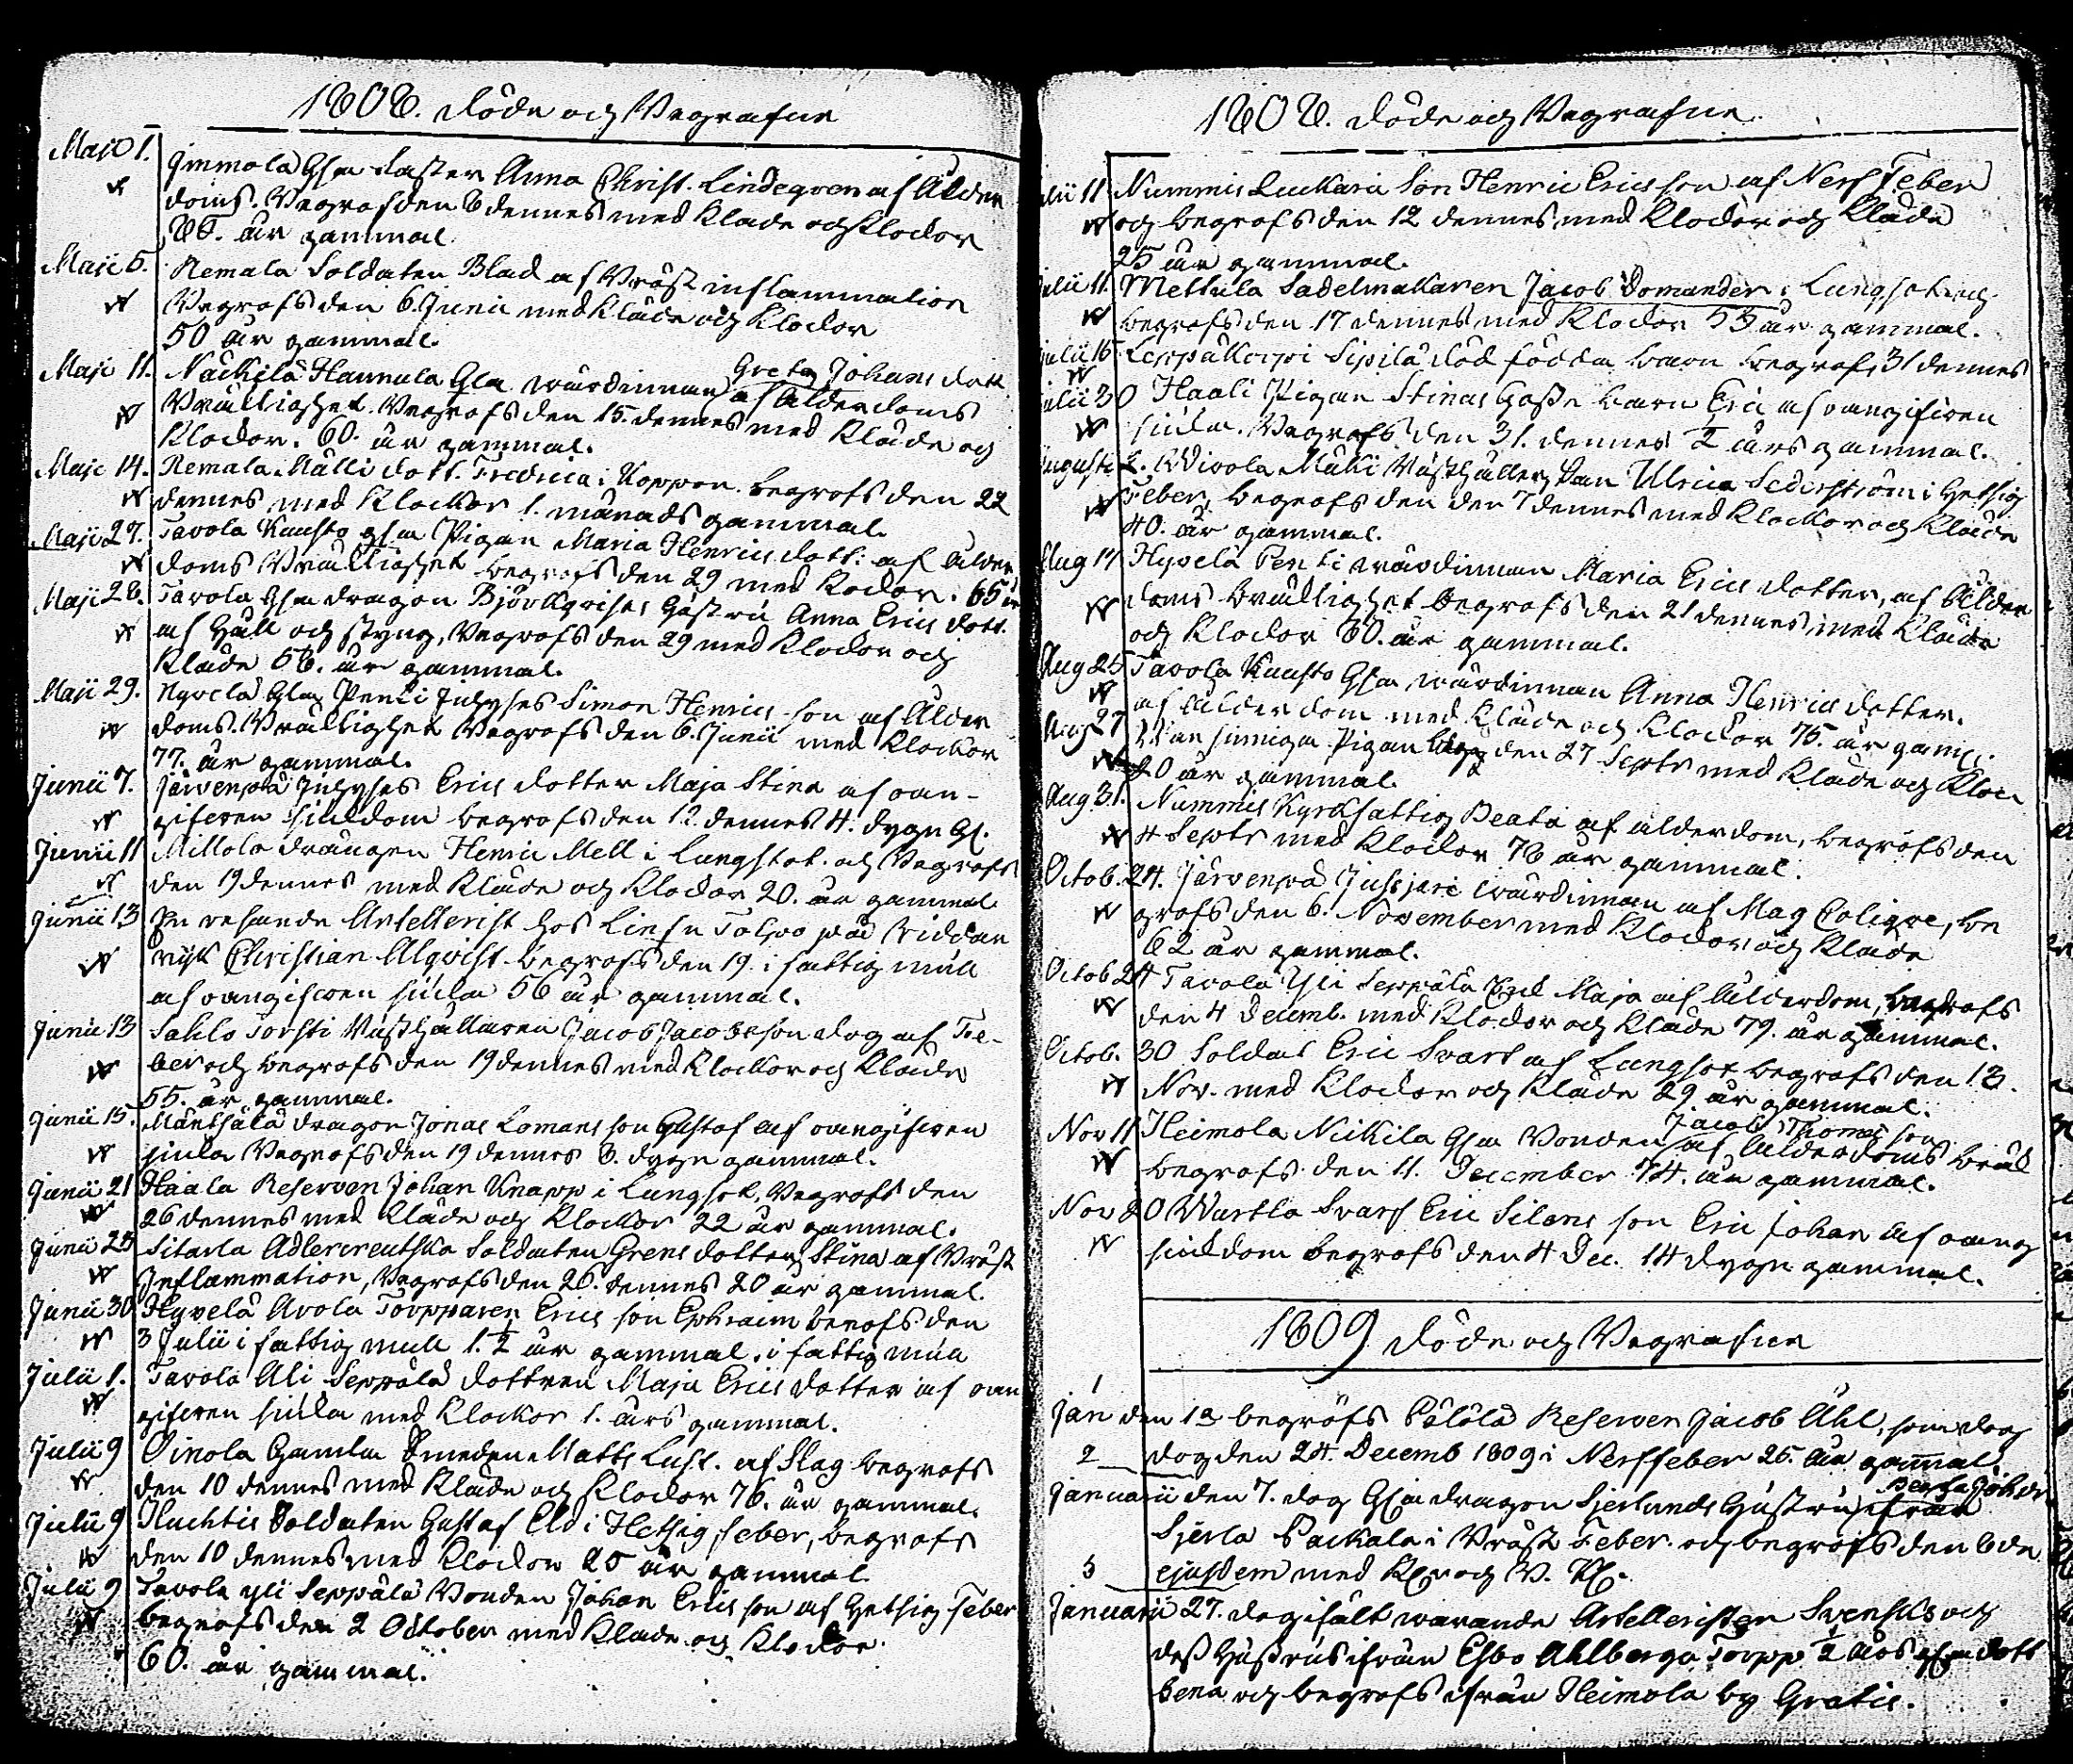 1808. döde och Begrafne
Maji 1. Jmmola Gla Faster Anna Christ. Lindegren af Ålder
doms. Begrofs den 8 dennes med Kläde och Klockor
88. år gammal
Maji 5. Remala Soldaten Blad af Bröst inflammation
Begrofs den 6. Junii med Kläde och Klockor
50 år gammal.
Greta Johans dott.
Maji 11. Näckilä Hannula Gla wärdinnan af ålderdoms
Bräcklighet. Begrofs den 15. dennes med Kläde och
Klockor. 60. år gammal.
Maji 14. Remala Mälli dott. Fredrica i Koppor. begrofs den 22
dennes med Klockor 1. månads gammal.
Maji 27. Tavola Knusto gla Pigan Maria Henrics dott: af ålder
doms Bräcklighet begrofs den 29 med Kockor. 65 år
Maji 28. Tavola Gla dragon Björkqvists Hustru Anna Erics dott.
af Håll och styng, Begrofs den 29 med Klockor och
Kläde 58. år gammal.
Maji 29. Hyvelä Gla Penti Inhyses Simon Henrics son af Ålder
doms. Bräcklighet Begrofs den 6. Junii med Klockor
77. år gammal.
Junii 7. Järvenpä Inhyses Erics dotter Maja Stina af oan-
gifven siukdom begrofs den 12. dennes 4. dygn Gl.
Junii 11 Millola drängen Henric Mell i Lungsot. och Begrofs
den 19 dennes med Kläde och Klockor 20. år gammal
Junii 13 En resande Artellerist hos Lien Tolpo på Nidder
Christian Alqvist begrofs den 19 i fattig mull
af oangifven siuka 56 år gammal.
Junii 13 Sahlo Torsti Wästhällaren Jacob Jacobsson dog af Fe-
ber och begrofs den 19 dennes med Klockor och Kläde
55. år gammal.
Junii 15. Mäntsälä dragon Jonas Lomans son Gustaf af oangifven
siuka Begrofs den 19 dennes 8. dygn gammal.
Junii 21 Haala Reserven Johan Knapp i Lungsot, Begrofs den
26 dennes med Kläde och Klockor 22 år gammal.
Junii 25 Sitarla Adlercreutska Soldaten Grens dotter Stina af Bröst
Inflammation, Begrofs den 26. dennes 20 år gammal.
Junii 30 Hyvelä Avola Torpparen Erics son Ephraim berofs den
3 Julii i fattig mull 1. ½ år gammal. i fattig mull
Julii 1. Tavola Ali Seppälä dottren Maja Erics dotter af oan
gifven siuka med Klockor 1. års gammal.
Julii 9 Oinola Gamla Smeden Matts Lust. af Slag begrofs
den 10 dennes med Kläde och Klockor 76. år gammal.
Julii 9 Huchtis Soldaten Gustaf Eld i Hetsig feber, begrofs
den 10 dennes med Klockor 25 år gammal
Julii 9 Tavola yli Seppälä Bonden Johan Erics son af Hetsig feber
begrofs den 2 October med Kläde och Klockor
60. år gammal.
1808. döde och Begrafne.
Julii 11 Nummis Luckari Son Henric Ericsson af Nerf Feber
och begrofs den 12 dennes med Klockor och Kläde
25 år gammal.
Julii 11. Mettula Sadelmakaren Jacob Domander i Lungsot och
begrofs den 17 dennes med Klockor 53 år gammal.
Julii 16 Leppäkorpi Sipilä död födda barn begrofs 31 dennes
Julii 30 Haali Pigan Stinas Gosse barn Eric af oangifven
siuka. Begrofs den 31. dennes ½ års gammal.
Augusti 2. Wivola Mäki Wästhällers dan Ulrica Sederström i Hetsig
Feber, begrofs den den 7 dennes med Klockor och Kläde
40. år gammal.
Aug 14 Hyvelä Penti wärdinnan Maria Erics dotter, af Ålder
doms bräcklighet begrofs den 21 dennes med Kläde
och Klockor 80. år gammal.
Aug 25 Tavola Knusto Gla wärdinnan Anna Henrics dotter.
af Ålderdom med Kläde och Klockor 75. år gaml.
Aug 27 Pigan den 27 Septr med Kläde och Klock
20 år gammal.
Aug 31. Nummis Kyrkfattig Beata af alderdom, begrofs den
4 Septr med Klockor 78 år gammal.
Octob. 24. Järvenpä Jussjari wärdinnan af Mag Colique, be
grofs den 6. November med Klockor och Kläde
62 år gammal.
Octob 24 Tavola Yli Seppälä Maja af Ålderdom, begrofs
den 4 Decemb. med Klockor och Kläde 79. år gammal.
Octob. 30 Soldat Eric Svart af Lungsot begrofs den 13.
Nov. med Klockor och Kläde 29 år gammal.
Jacob Thomas son
Nov 11 Heimola Nickila Gla Bonden af Ålderdoms bräck
begrofs den 11. December 74. år gammal.
Nov 20 Wartla Svarf Eric Silens son Eric Johan af oang
siukdom begrofs den 4 Dec. 14 dygn gammal.
1809 döde och Begrafne
1
Jan den 1a begrofs Pälölä Reserven Jacob Åhl, som dog
2 dog den 24. Decemb 1809 i Nerffeber 25. år gammal
Januarii den 7. dog Gla dragon Sjerlunds Hustru ifrån
Sjerla Packala i Bröst Feber. och begrofs den 8de
3 ejusdem med Kl. och B. Kl.
Januarii 27. dog i fält warande Artelleristen Svensks och
dess Hustrus ifrån Esbo Ahlberga Torpp ½ års gla dott
Lena och begrofs ifrån Heimola by Gratis.